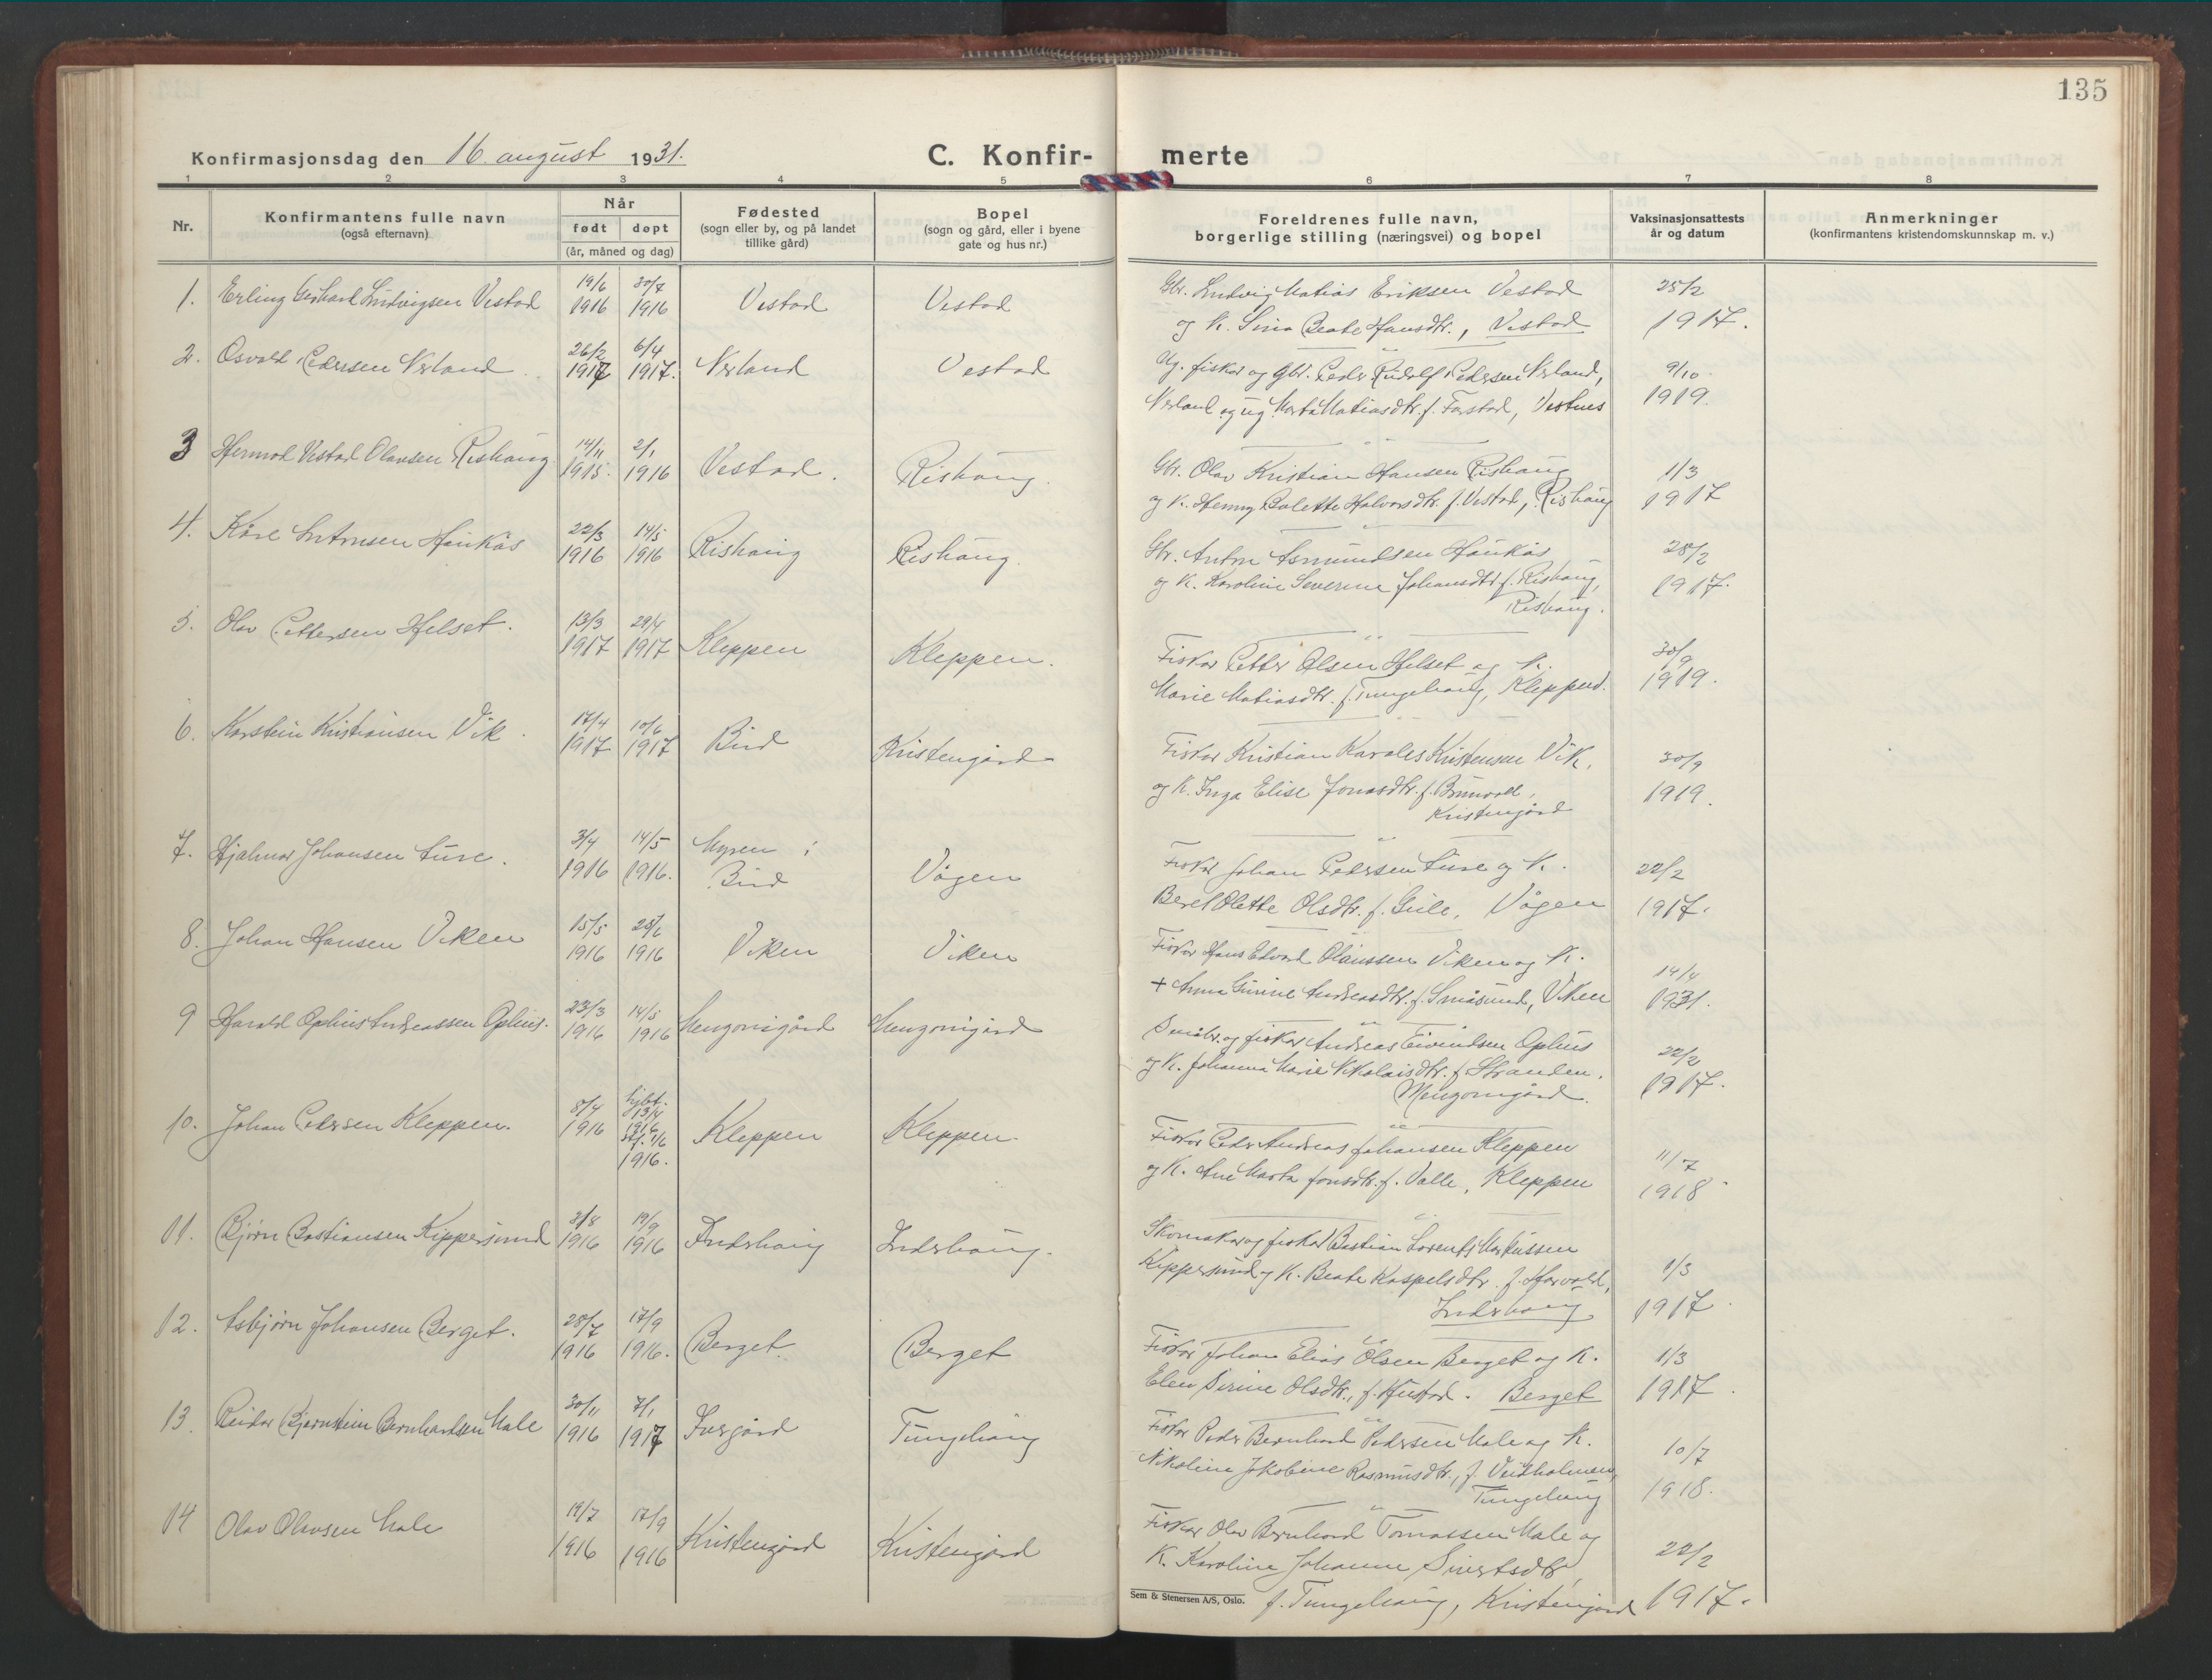 135
Konfirmasjonsdag den 16. august 1931.
C. Konfir- merte
1 2 3 4 5 6 7 8
Nr.
Konfirmantens fulle navn
(også efternavn)
Når
født døpt
(år, måned og dag)
Fødested
(sogn eller by, og på landet
tillike gård)
Bopel
(sogn og gård, eller i byene
gate og hus nr.)
Foreldrenes fulle navn,
borgerlige stilling (næringsvei) og bopel
Vaksinasjonsattests
år og datum
Anmerkninger
(konfirmantens kristendomskunnskap m. v.)
1. Erling Gerhard Ludvigsen Vestad 19/6 1916 30/7 1916 Vestad Vestad
Gbr. Ludvig Matias Eriksen Vestad 25/2
og K. Sina Beate Hansdtr., Vestad 1917.
2. Osvald Pedersen Nerland 26/2 1917 6/4 1917. Nerland Vestad
Ug. fisker og gbr. Peder Rudolf Pedersen Nerland, 9/10
Nerland og ug. Marta Matiasdtr. f. Farstad, Vestnes 1919.
3 Hermod Vestad Olavsen Rishaug 14/11 1915. 2/1 1916 Vestad. Rishaug.
Gbr. Olav Kristian Hansen Rishaug 1/3
og K. Henny Palette Halvorsdtr. f. Vestad, Rishaug 1917
4. Kåre Antonsen Haukås 22/3 1916 14/5 1916 Rishaug Rishaug.
Gbr. Anton Asmundsen Haukås 28/2
og K. Karoline Severine Johansdtr. f. Rishaug, 1917.
Rishaug.
5. Olav Pettersen Helset. 13/3 1917 29/4 1917 Kleppen Kleppen.
Fisker Petter Olsen Helset og K. 30/9
Marie Matiasdtr. f. Tungehaug, Kleppen. 1919.
6. Karstein Kristiansen Vik. 17/4 1917 10/6 1917 Bud Kristengård
Fisker Kristian Karolus Kristensen Vik, 30/9
og K. Inga Elise Jonasdtr. f. 1919.
Kristengård
7. Hjalmar Johansen Ture. 3/4 1916 14/5 1916. Myren i Bud Vågen
Fisker Johan Pedersen Ture og K. 22/2
Beret Olette Olsdtr. f. Gule, Vågen 1917.
8. Johan Hansen Viken 15/5 1916 25/6 1916 Viken Viken
Fisker Hans Edvard Olaussen Viken og K. 14/4
+ Anna Gurine Andreasdtr. f. Småsund, Viken 1931.
9 Harald Ophus Andreassen Ophus. 23/3 1916 14/5 1916 Mengonigård Mengonigård
Småbr. og fisker Andreas Eivindsen Ophus 22/2
og K. Johanna Marie Nikolaisdtr. f. Stranden. 1917.
Mengonigård.
10. Johan Pedersen Kleppen. 8/4 1916 hjdt. 13/4 1916 st. 1/6 1916. Kleppen Kleppen.
Fisker Peder Andreas Johansen Kleppen 11/7
og K. Ane Marta Jonsdtr. f. Valle, Kleppen 1918
11. Bjørn Bastiansen Kippersund 3/8 1916 19/9 1916 Inderhaug Inderhaug.
Skomaker og fisker Bastian Lorents Markussen
Kippersund og K. Beate Kaspelsdtr. f. Harvold, 1/3
Inderhaug 1917
12. Asbjørn Johansen Berget. 28/7 1916 17/9 1916. Berget. Berget
Fisker Johan Elias Olsen Berget og K. 1/3
Elen Serine Olsdtr., f. Hustad. Berget 1917.
13. Reidar Bjørnstein Bernhardsen Male 30/11 1916 7/1 1917 Ivergård Tungehaug
Fisker Peder Bernhard Pedersen Male og K. 10/7
Nikoline Jakobine Rasmusdtr., f. Veidholmen, 1918.
Tungehaug
14 Olav Olavsen Male 19/7 1916 17/9 1916 Kristengård Kristengård
Fisker Olav Bernhard Tomassen Male og 22/2
K. Karoline Johanne Sivertsdtr. 1917.
f. Tungehaug, Kristengård
Sem & Stenersen A/S, Oslo.